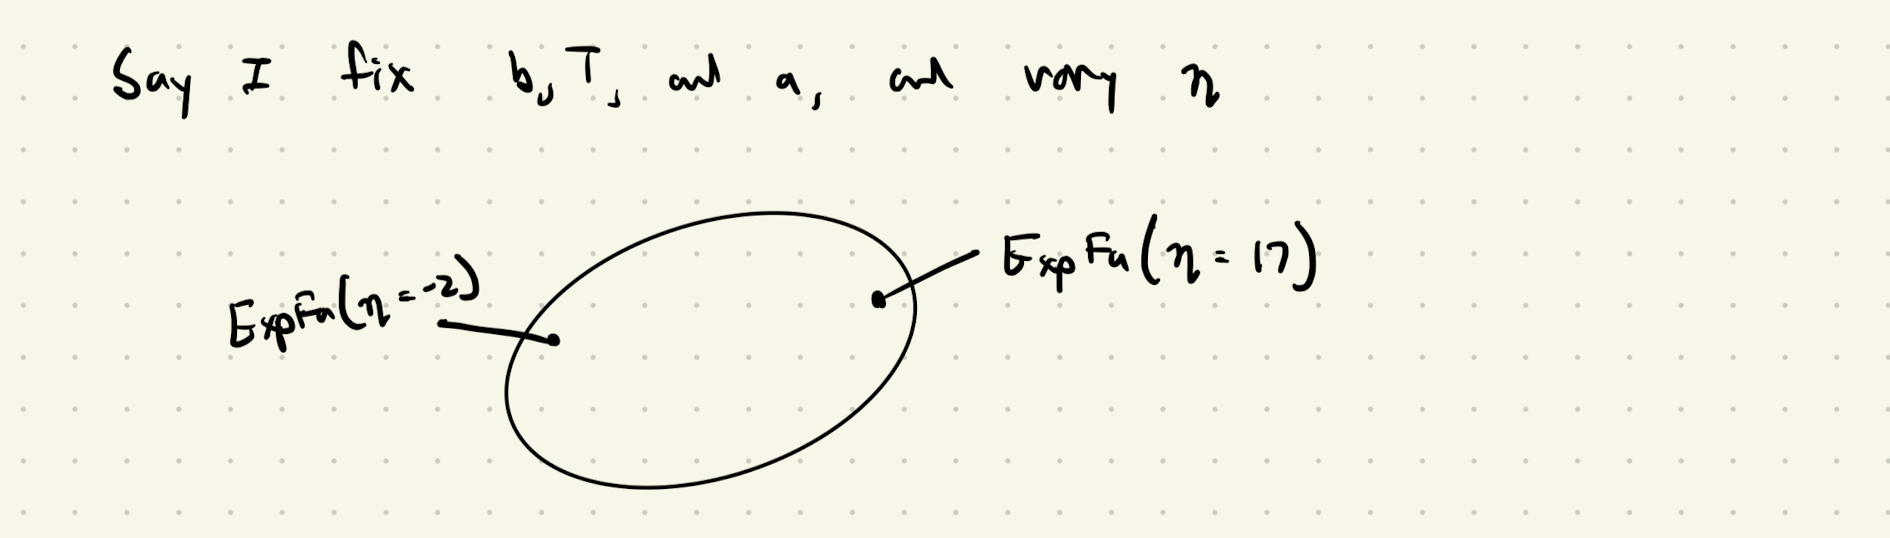 Say I fix b, T, and a, and vary η
ExpFa(η = 17)
ExpFa(η = -2)